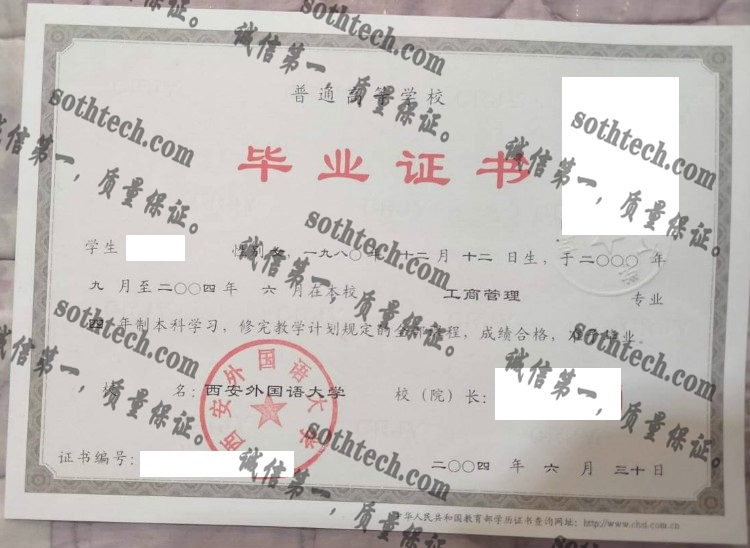 普通高等学校
毕业证书
学生 性别 女, 一九八〇年 十二月 十二日生, 于二〇〇〇年
九月至二〇〇四年 六月在本校 工商管理 专业
四年制本科学习, 修完教学计划规定的全部课程, 成绩合格, 准予毕业。
校 名: 西安外国语大学 校(院)长:
西安外国语大学
证书编号:
二〇〇四 年 六 月 三十日
中华人民共和国教育部学历证书查询网址: http://www.chsi.com.cn
sothtech.com
诚信第一,质量保证。
sothtech.com
诚信第一,质量保证。
sothtech.com
诚信第一,质量保证。
sothtech.com
诚信第一,质量保证。
sothtech.com
诚信第一,质量保证。
sothtech.com
诚信第一,质量保证。
sothtech.com
诚信第一,质量保证。
sothtech.com
诚信第一,质量保证。